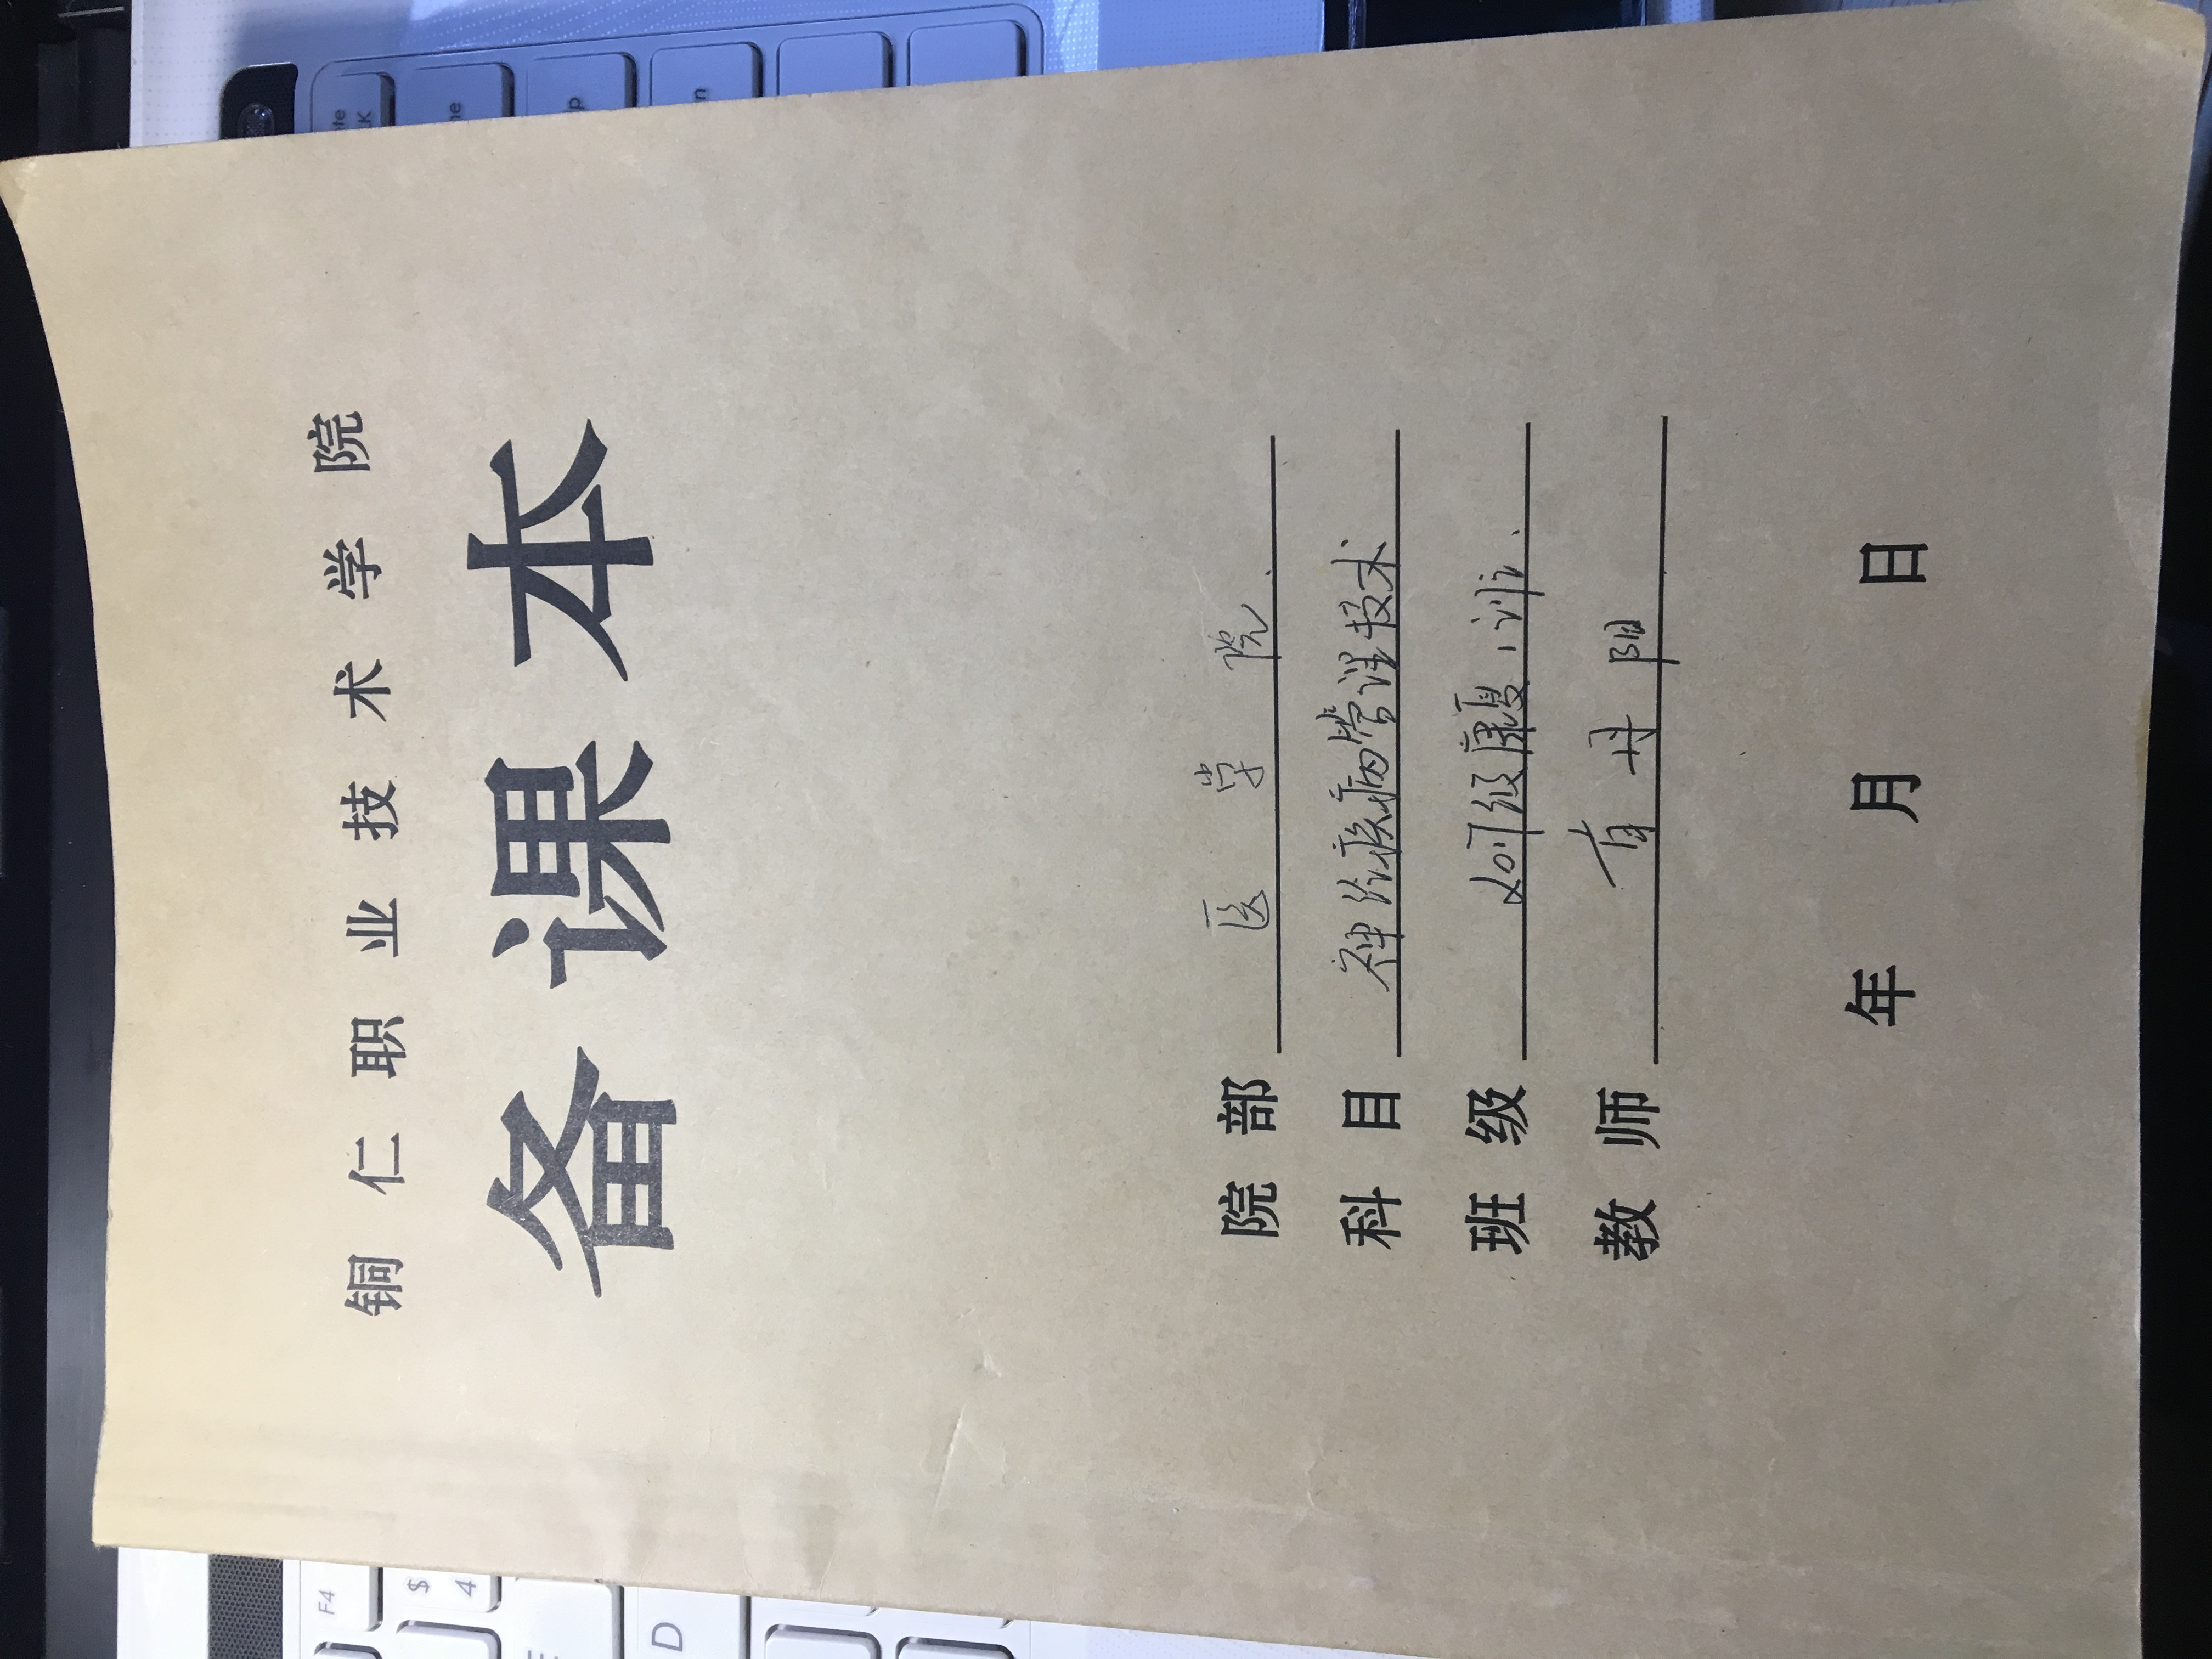 铜仁职业技术学院
备课本
院部 医学院
科目 神经疾病管理技术
班级 级康复
教师 丹阳
年 月 日
F4
$
4
D